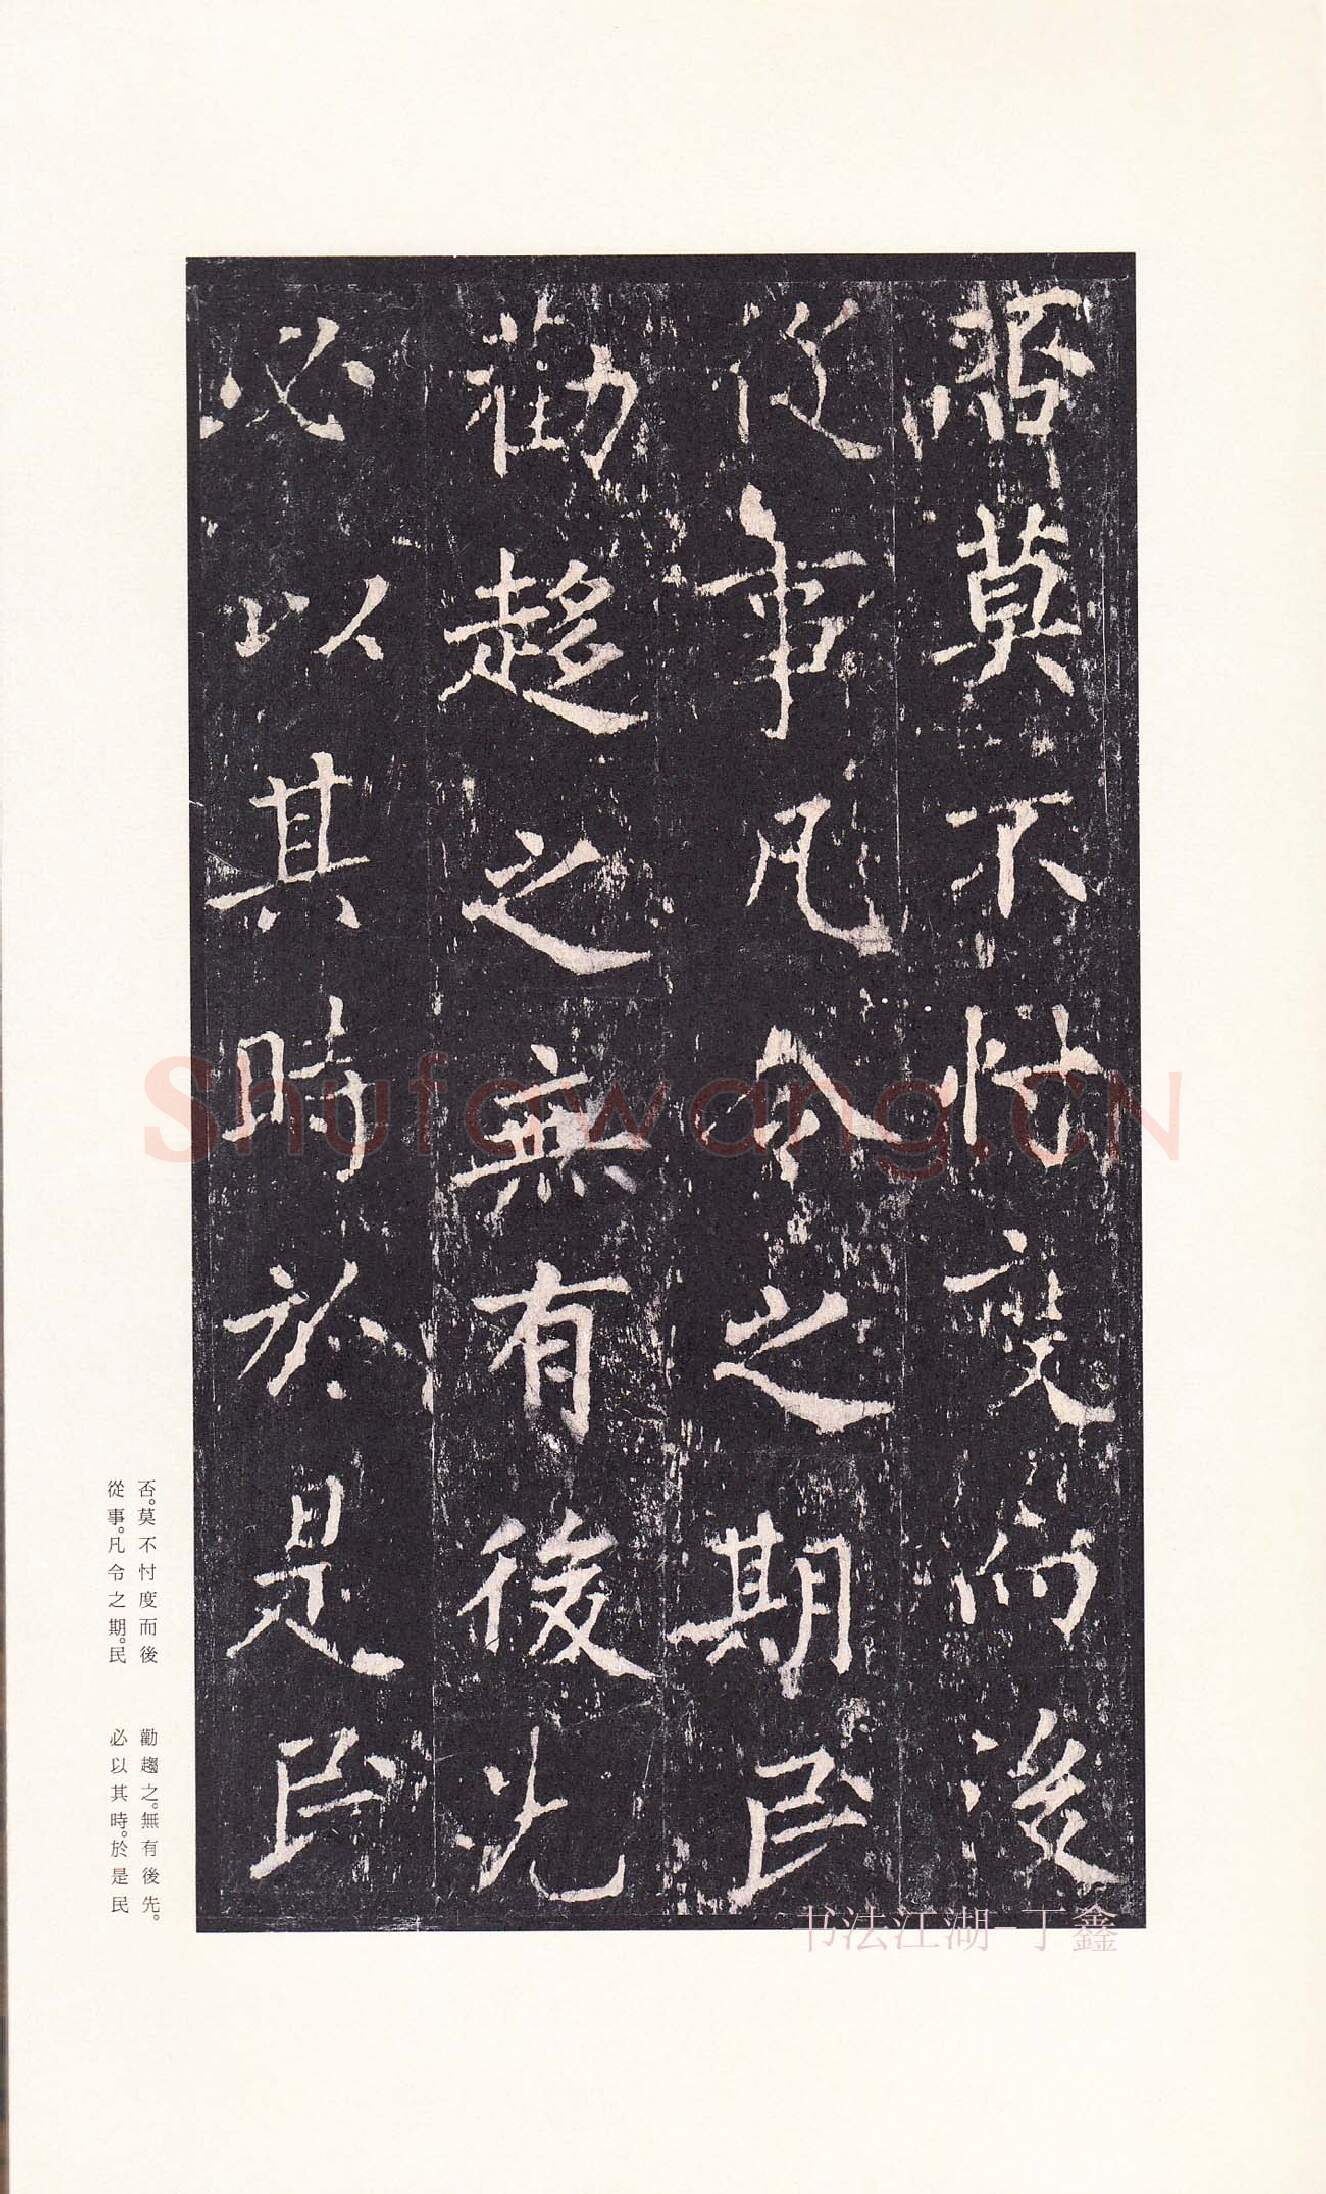 否莫不忖度而後
從事凡令之期民
勸趍之無有後先
必以其時於是民
否。莫不忖度而後
從事。凡令之期。民
勸趨之。無有後先。
必以其時。於是民
Shufawang.CN
书法江湖-丁鑫